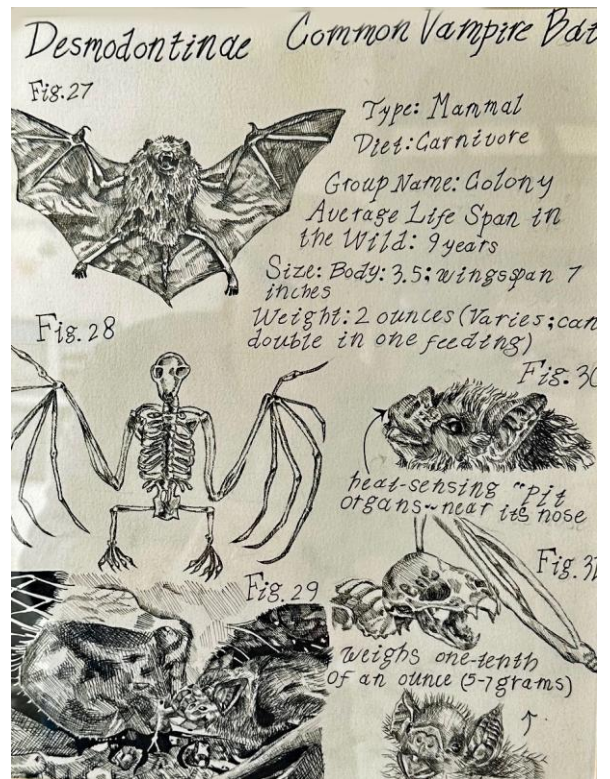 Desmodontinae Common Vampire Bat
Fig.27
Type: Mammal
Diet: Carnivore
Group Name: Colony
Average Life Span in
the Wild: 9 years
Size: Body: 3.5; wingsspan 7
inches
Weight: 2 ounces (Varies; can
double in one feeding)
Fig.28
Fig.30
heat-sensing "Pit
organs~near its nose
Fig.29
Fig.31
weighs one-tenth
of an ounce (5-7 grams)